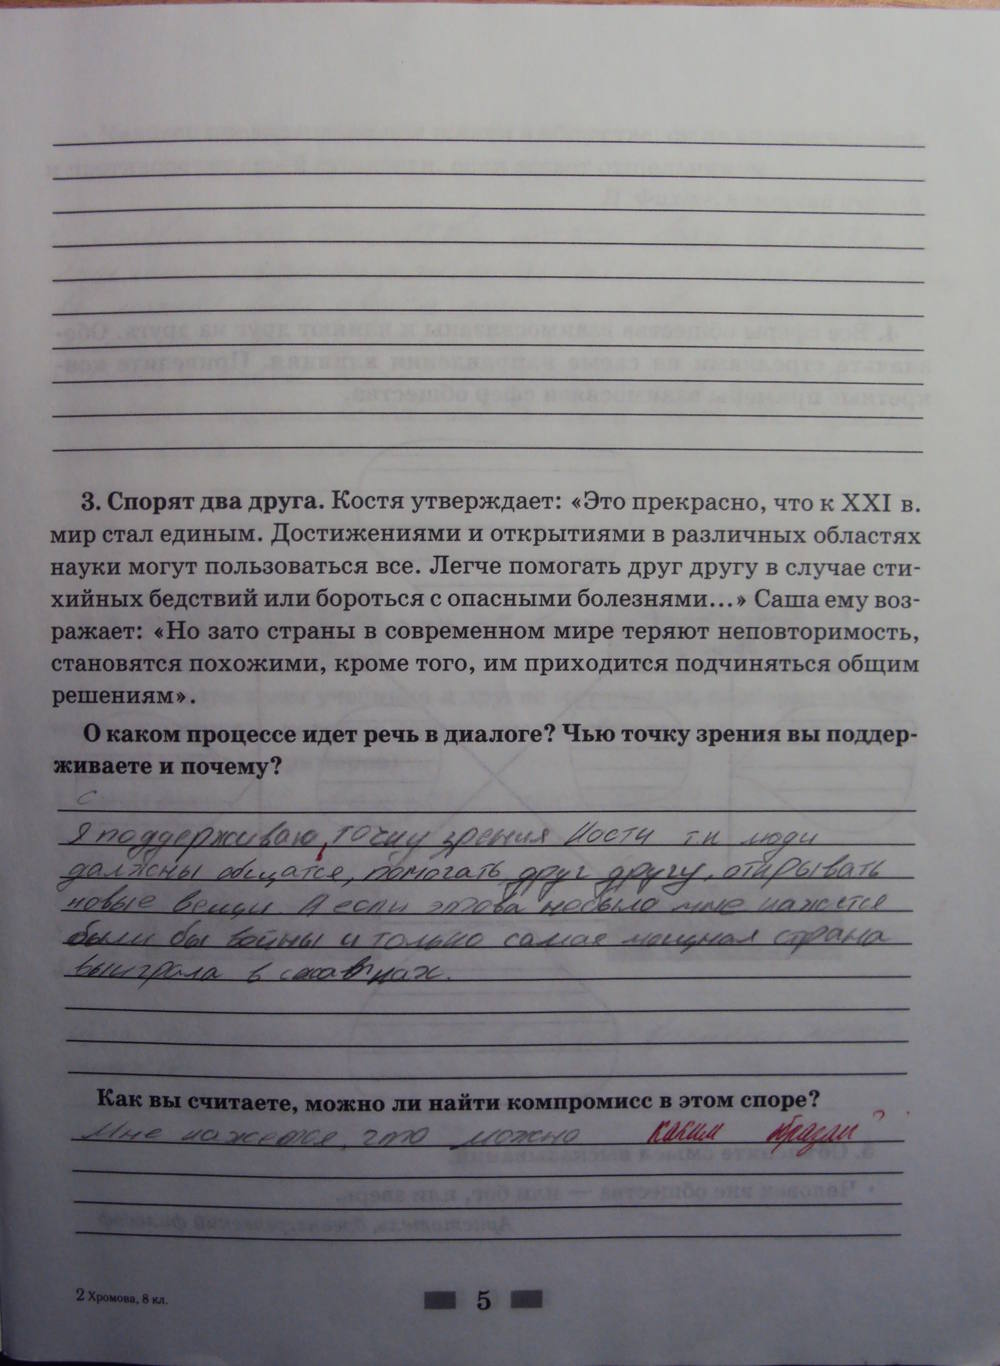 3. Спорят два друга. Костя утверждает: «Это прекрасно, что к XXI в.
мир стал единым. Достижениями и открытиями в различных областях
науки могут пользоваться все. Легче помогать друг другу в случае сти-
хийных бедствий или бороться с опасными болезнями...» Саша ему воз-
ражает: «Но зато страны в современном мире теряют неповторимость,
становятся похожими, кроме того, им приходится подчиняться общим
решениям».
О каком процессе идет речь в диалоге? Чью точку зрения вы поддер-
живаете и почему?
Я поддерживаю, точку зрения Кости т.к люди
должны общатся, помогать друг другу, открывать
новые вещи. А если этова небыло мне кажется
были бы войны и только самая мощная страна
выиграла в
Как вы считаете, можно ли найти компромисс в этом споре?
Мне кажется, что можно каким образом?
2 Хромова, 8 кл.
5